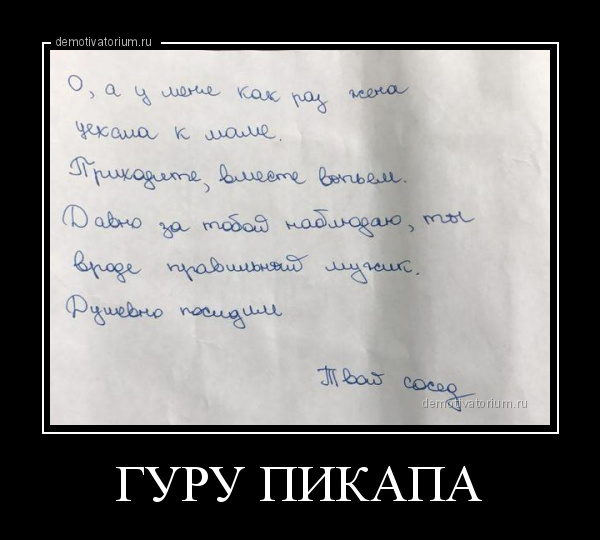 demotivatorium.ru
О, а у меня как раз жена
уехала к маме.
Приходите, вместе выпьем.
Давно за тобой наблюдаю, ты
вроде правильный мужик.
Душевно посидим
Твой сосед
demotivatorium.ru
ГУРУ ПИКАПА